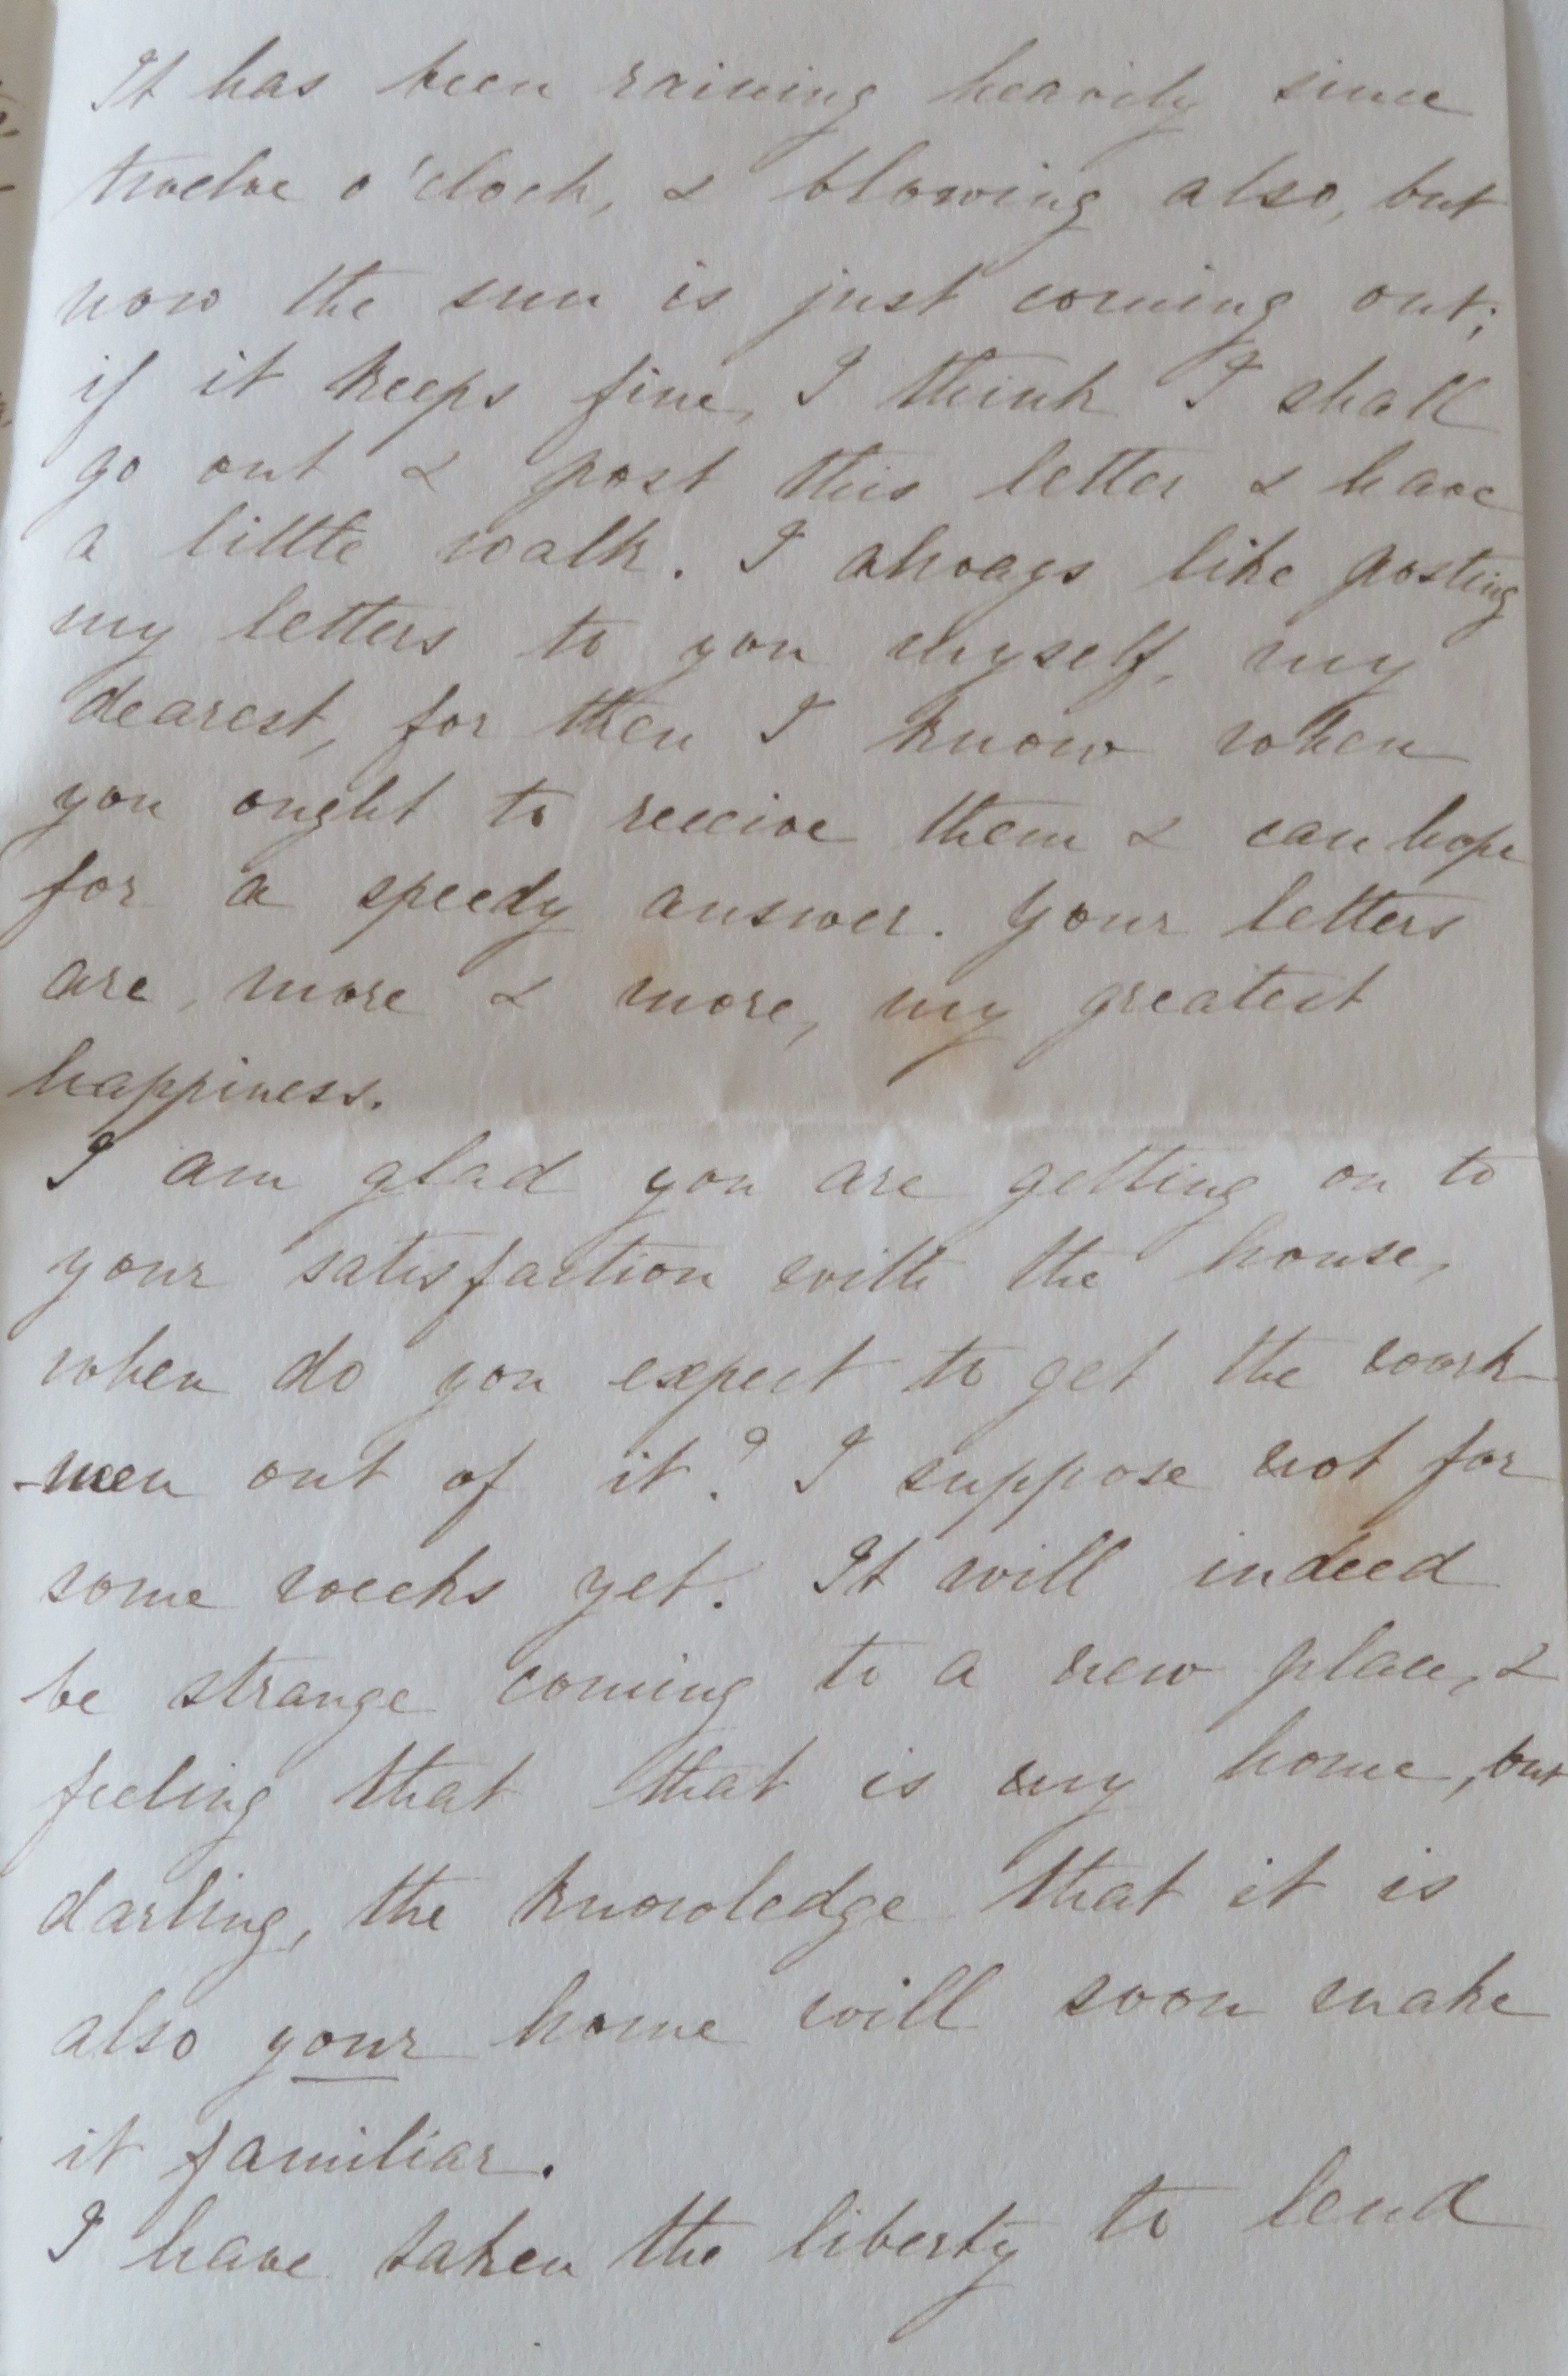 It has been raining heavily since
twelve o'clock, & blowing also, but
now the sun is just coming out;
if it keeps fine, I think I shall
go out & post this letter & have
a little walk. I always like posting
my letters to you myself, my
dearest, for then I know when
you ought to receive them & can hope
for a speedy answer. Your letters
are, more & more, my greatest
happiness.
I am glad you are getting on to
your satisfaction with the house,
when do you expect to get the work-
-men out of it? I suppose not for
some weeks yet. It will indeed
be strange coming to a new place, &
feeling that that is my home, but
darling, the knowledge that it is
also your home will soon make
it familiar.
I have taken the liberty to lend